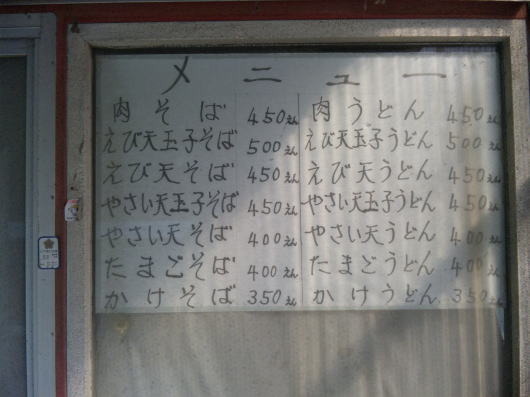 メニュー
肉そば 450えん 肉うどん 450えん
えび天玉子そば 500えん えび天玉子うどん 500えん
えび天そば 450えん えび天うどん 450えん
やさい天玉子そば 450えん やさい天玉子うどん 450えん
やさい天そば 400えん やさい天うどん 400えん
たまごそば 400えん たまごうどん 400えん
かけそば 350えん かけうどん 350えん